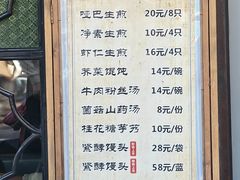 哑巴生煎 20元/8只
净素生煎 10元/4只
虾仁生煎 16元/4只
荠菜馄饨 14元/碗
牛肉粉丝汤 14元/碗
菌菇山药汤 8元/份
桂花糖芋艿 10元/份
紧酵馒头 28元/袋
紧酵馒头 58元/蓝